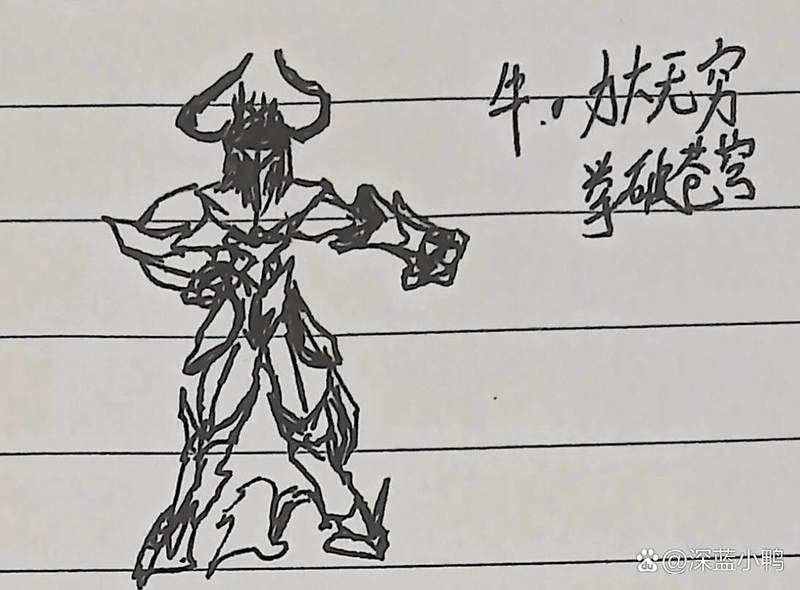 牛：力大无穷
拳破苍穹
du @深蓝小鸭